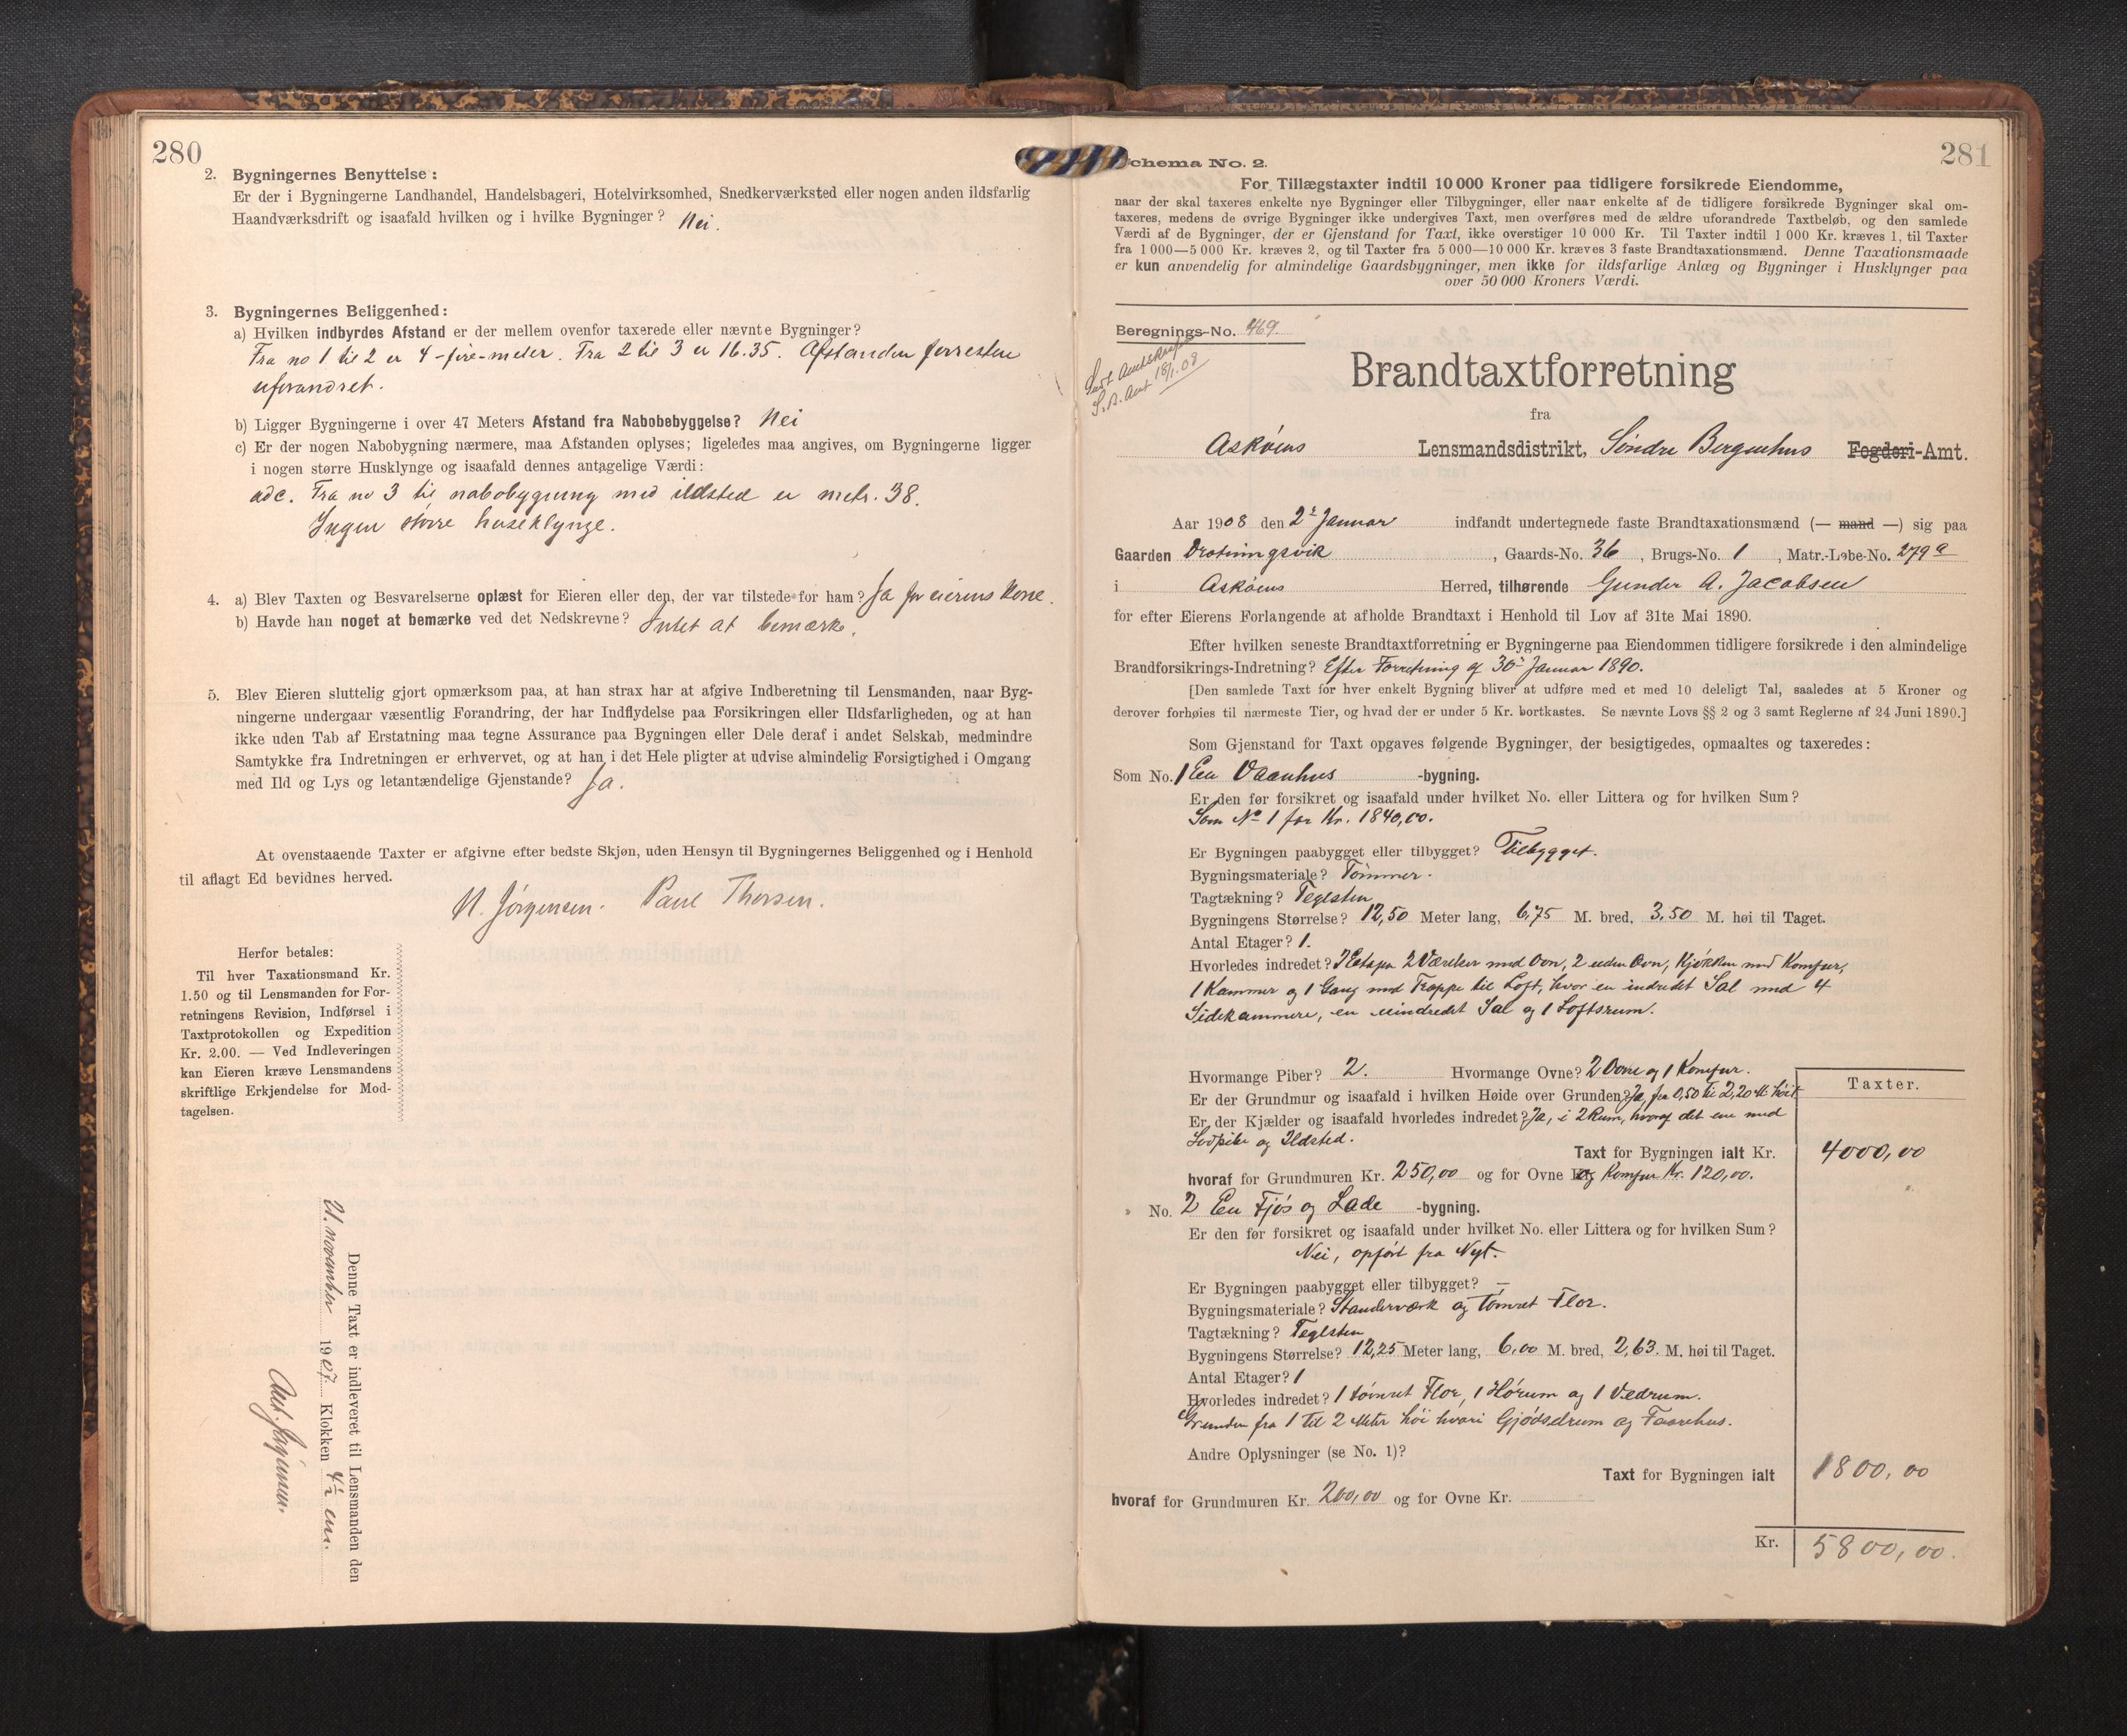 280
2. Bygningernes Benyttelse:
Er der i Bygningerne Landhandel, Handelsbageri, Hotelvirksomhed, Snedkerværksted eller nogen anden ildsfarlig
Haandværksdrift og isaafald hvilken og i hvilke Bygninger? Nei.
3. Bygningernes Beliggenhed:
a) Hvilken indbyrdes Afstand er der mellem ovenfor taxerede eller nævnte Bygninger?
Fra no 1 til 2 er 4 - fire-meter. Fra 2 til 3 er 16.35. Afstanden forresten
uforandret.
b) Ligger Bygningerne i over 47 Meters Afstand fra Nabobebyggelse? Nei
c) Er der nogen Nabobygning nærmere, maa Afstanden oplyses; ligeledes maa angives, om Bygningerne ligger
i nogen større Husklynge og isaafald dennes antagelige Værdi:
adc. Fra no 3 til nabobygning med ildsted er metr. 38.
Ingen større huseklynge.
4. a) Blev Taxten og Besvarelserne oplæst for Eieren eller den, der var tilstede for ham? Ja for eierens Kone.
b) Havde han noget at bemærke ved det Nedskrevne? Intet at bemærke.
5. Blev Eieren sluttelig gjort opmærksom paa, at han strax har at afgive Indberetning til Lensmanden, naar Byg-
ningerne undergaar væsentlig Forandring, der har Indflydelse paa Forsikringen eller Ildsfarligheden, og at han
ikke uden Tab af Erstatning maa tegne Assurance paa Bygningen eller Dele deraf i andet Selskab, medmindre
Samtykke fra Indretningen er erhvervet, og at han i det Hele pligter at udvise almindelig Forsigtighed i Omgang
med Ild og Lys og letantændelige Gjenstande? Ja.
At ovenstaaende Taxter er afgivne efter bedste Skjøn, uden Hensyn til Bygningernes Beliggenhed og i Henhold
til aflagt Ed bevidnes herved.
N. Jørgensen. Paul Thorsen.
Herfor betales:
Til hver Taxationsmand Kr.
1.50 og til Lensmanden for For-
retningens Revision, Indførsel i
Taxtprotokollen og Expedition
Kr. 2.00. — Ved Indleveringen
kan Eieren kræve Lensmandens
skriftlige Erkjendelse for Mod-
tagelsen.
Denne Taxt er indleveret til Lensmanden den
21. november 1907. Klokken 4½ em.
281
Schema No. 2.
For Tillægstaxter indtil 10 000 Kroner paa tidligere forsikrede Eiendomme,
naar der skal taxeres enkelte nye Bygninger eller Tilbygninger, eller naar enkelte af de tidligere forsikrede Bygninger skal om-
taxeres, medens de øvrige Bygninger ikke undergives Taxt, men overføres med de ældre uforandrede Taxtbeløb, og den samlede
Værdi af de Bygninger, der er Gjenstand for Taxt, ikke overstiger 10 000 Kr. Til Taxter indtil 1 000 Kr. kræves 1, til Taxter
fra 1 000—5 000 Kr. kræves 2, og til Taxter fra 5 000—10 000 Kr. kræves 3 faste Brandtaxationsmænd. Denne Taxationsmaade
er kun anvendelig for almindelige Gaardsbygninger, men ikke for ildsfarlige Anlæg og Bygninger i Husklynger paa
over 50 000 Kroners Værdi.
Beregnings-No. 469.
S.B. Amt 18/1.08
Brandtaxtforretning
fra
Askøens Lensmandsdistrikt, Søndre Bergenhus Fogderi-Amt.
Aar 1908 den 2de Januar indfandt undertegnede faste Brandtaxationsmænd (— mand —) sig paa
Gaarden Drotningsvik, Gaards-No. 36, Brugs-No. 1, Matr.-Løbe-No. 279a
i Askøens Herred, tilhørende Gunder A. Jacobsen
for efter Eierens Forlangende at afholde Brandtaxt i Henhold til Lov af 31te Mai 1890.
Efter hvilken seneste Brandtaxtforretning er Bygningerne paa Eiendommen tidligere forsikrede i den almindelige
Brandforsikrings-Indretning? Efter Forretning af 30te Januar 1890.
[Den samlede Taxt for hver enkelt Bygning bliver at udføre med et med 10 deleligt Tal, saaledes at 5 Kroner og
derover forhøies til nærmeste Tier, og hvad der er under 5 Kr. bortkastes. Se nævnte Lovs §§ 2 og 3 samt Reglerne af 24 Juni 1890.]
Som Gjenstand for Taxt opgaves følgende Bygninger, der besigtigedes, opmaaltes og taxeredes:
Som No. 1 En Vaanhus -bygning.
Er den før forsikret og isaafald under hvilket No. eller Littera og for hvilken Sum?
Som No 1 for Kr. 1840,00.
Er Bygningen paabygget eller tilbygget? Tilbygget.
Bygningsmateriale? Tømmer.
Tagtækning? Teglsten
Bygningens Størrelse? 12,50 Meter lang, 6,75 M. bred, 3,50 M. høi til Taget.
Antal Etager? 1.
Hvorledes indredet? I Etagen 2 Værelser med Ovn, 2 uden Ovn, Kjøkken med Komfur,
1 Kammer og 1 Gang med Trappe til Loft, hvor en indredet Sal med 4
Sidekammere, en uindredet Sal og 1 Loftsrum.
Hvormange Piber? 2. Hvormange Ovne? 2 Ovne og 1 Komfur.
Taxter.
Er der Grundmur og isaafald i hvilken Høide over Grunden? Ja, fra 0,50 til 2,20 M. høit
Er der Kjælder og isaafald hvorledes indredet? Ja, i 2 Rum, hvoraf det ene med
Lodpibe og Ildsted.
Taxt for Bygningen ialt Kr. 4000,00
hvoraf for Grundmuren Kr. 250,00 og for Ovne Kr. og Komfur Kr. 120,00.
„ No. 2 En Fjøs og Lade -bygning.
Er den før forsikret og isaafald under hvilket No. eller Littera og for hvilken Sum?
Nei, opført fra Nyt.
Er Bygningen paabygget eller tilbygget? —
Bygningsmateriale? Standerværk og tømret Flor.
Tagtækning? Teglsten
Bygningens Størrelse? 12,25 Meter lang, 6,00 M. bred, 2,63. M. høi til Taget.
Antal Etager? 1
Hvorledes indredet? 1 tømret Flor, 1 Hørum og 1 Vedrum.
Grunden fra 1 til 2 Meter høi hvori Gjødselrum og Faarehus.
Andre Oplysninger (se No. 1)?
Taxt for Bygningen ialt 1800,00
hvoraf for Grundmuren Kr. 200,00 og for Ovne Kr.
Kr. 5800,00.